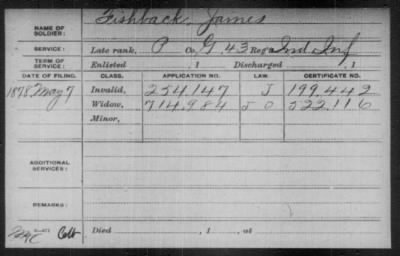 NAME OF SOLDIER: Fishback, James
SERVICE: Late rank, P Co. G 43 Reg't Ind. Inf
TERM OF SERVICE: Enlisted , 1 Discharged , 1
DATE OF FILING. CLASS. APPLICATION NO. LAW. CERTIFICATE NO.
1878 May 7 Invalid, 254.147 J 199.442
Widow, 714.984 J O 522.116
Minor,
ADDITIONAL SERVICES:
REMARKS:
Died , 1 , at